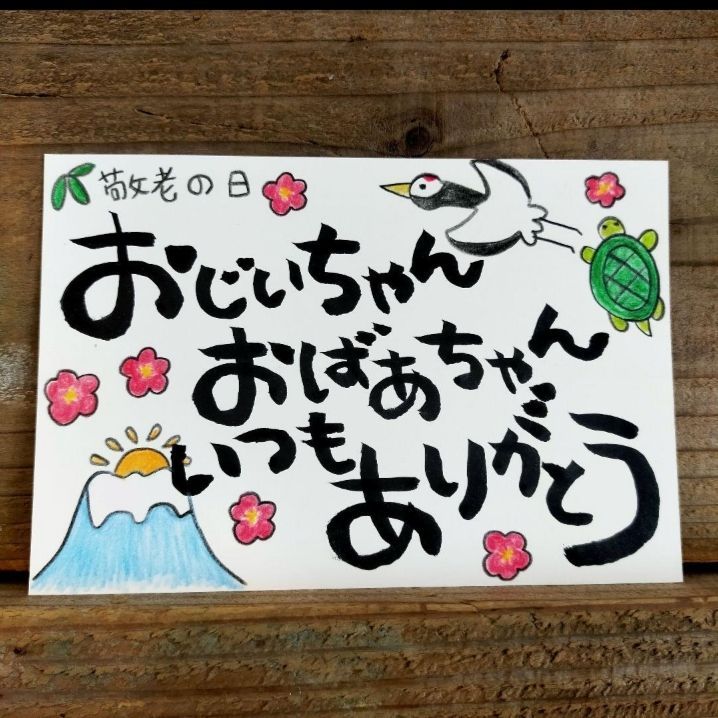 敬老の日
おじいちゃん
おばあちゃん
いつも
ありがとう